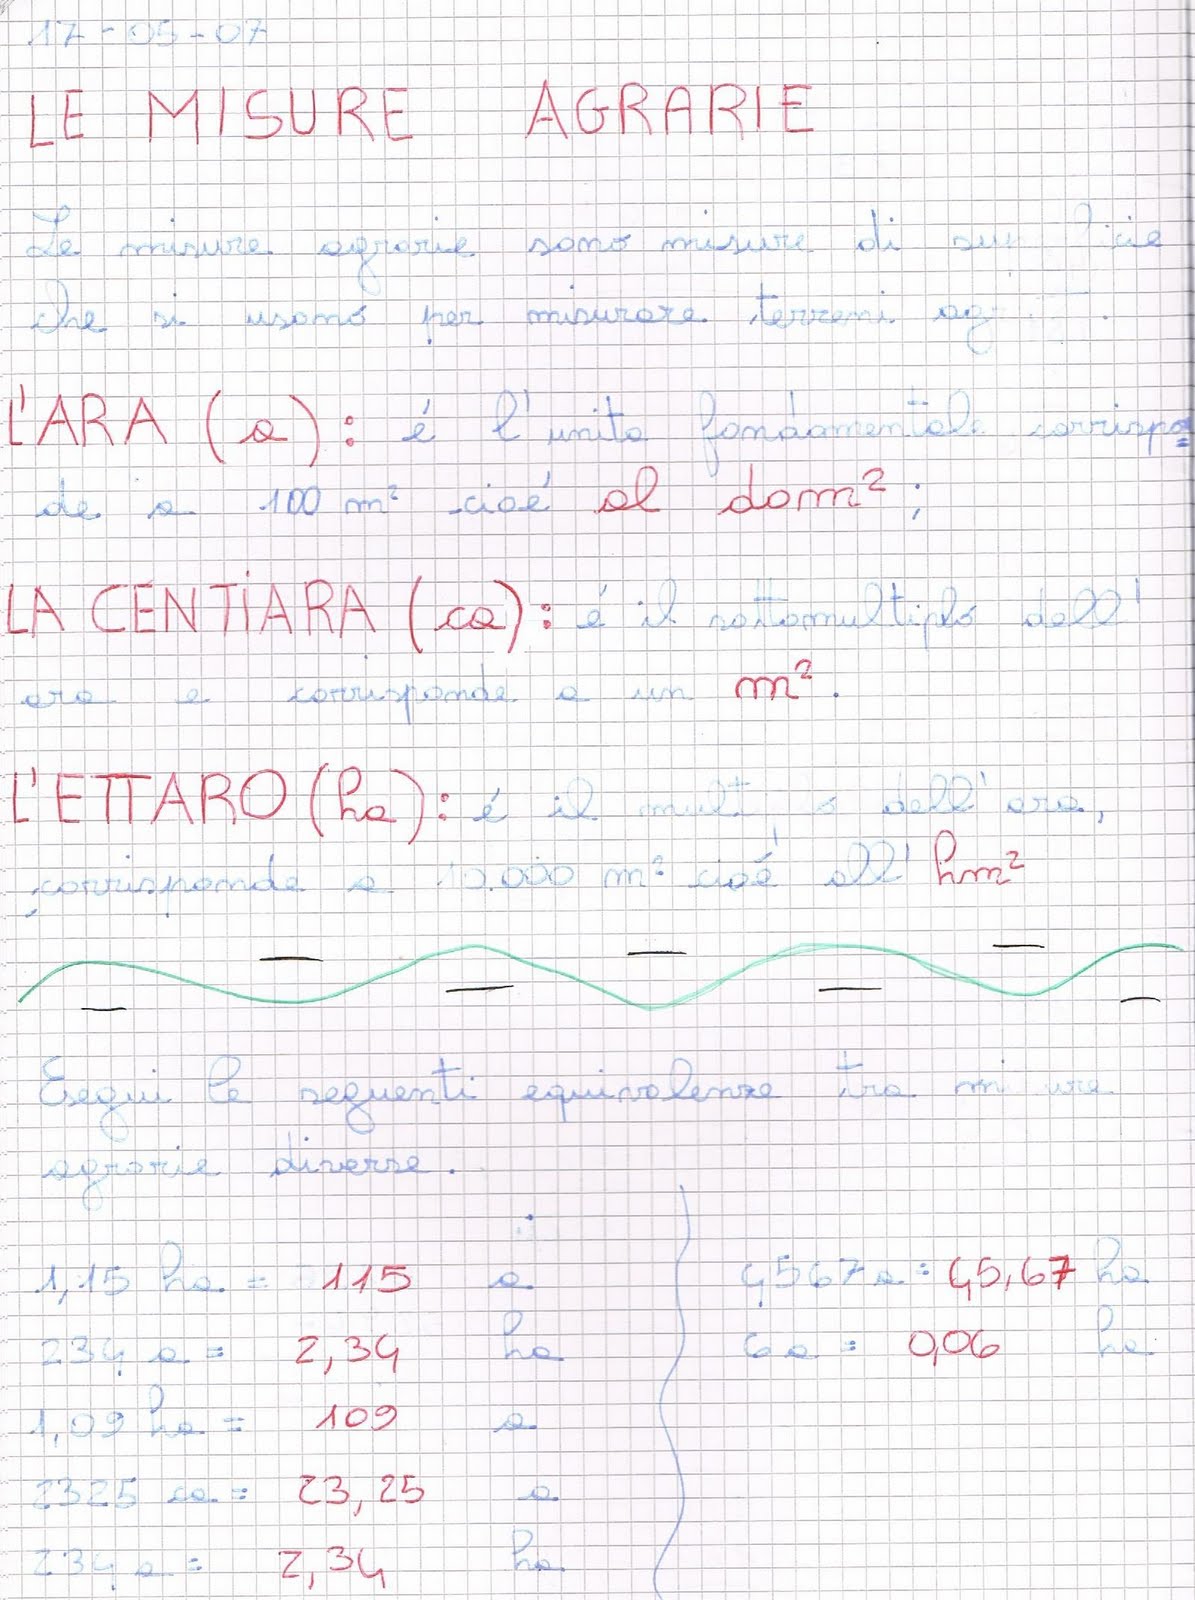 17-05-07
LE MISURE AGRARIE
Le misure agrarie sono misure di
che si usano per misurare terreni
L'ARA (a): é l'unita fondamentale corrispon
de a 100 m² cioé al dam²;
LA CENTIARA (ca): é il sottomultiplo dell'
ara e corrisponde a un m².
L'ETTARO (ha): é il dell'ara,
corrisponde a 10.000 m² cioé all' hm²
Esegui le seguenti equivalenze tra
agrarie diverse.
1,15 ha = 115 a
234 a = 2,34 ha
1,09 ha = 109 a
2325 ca = 23,25 a
234 a = 2,34 ha
4567 a = 45,67 ha
6 a = 0,06 ha